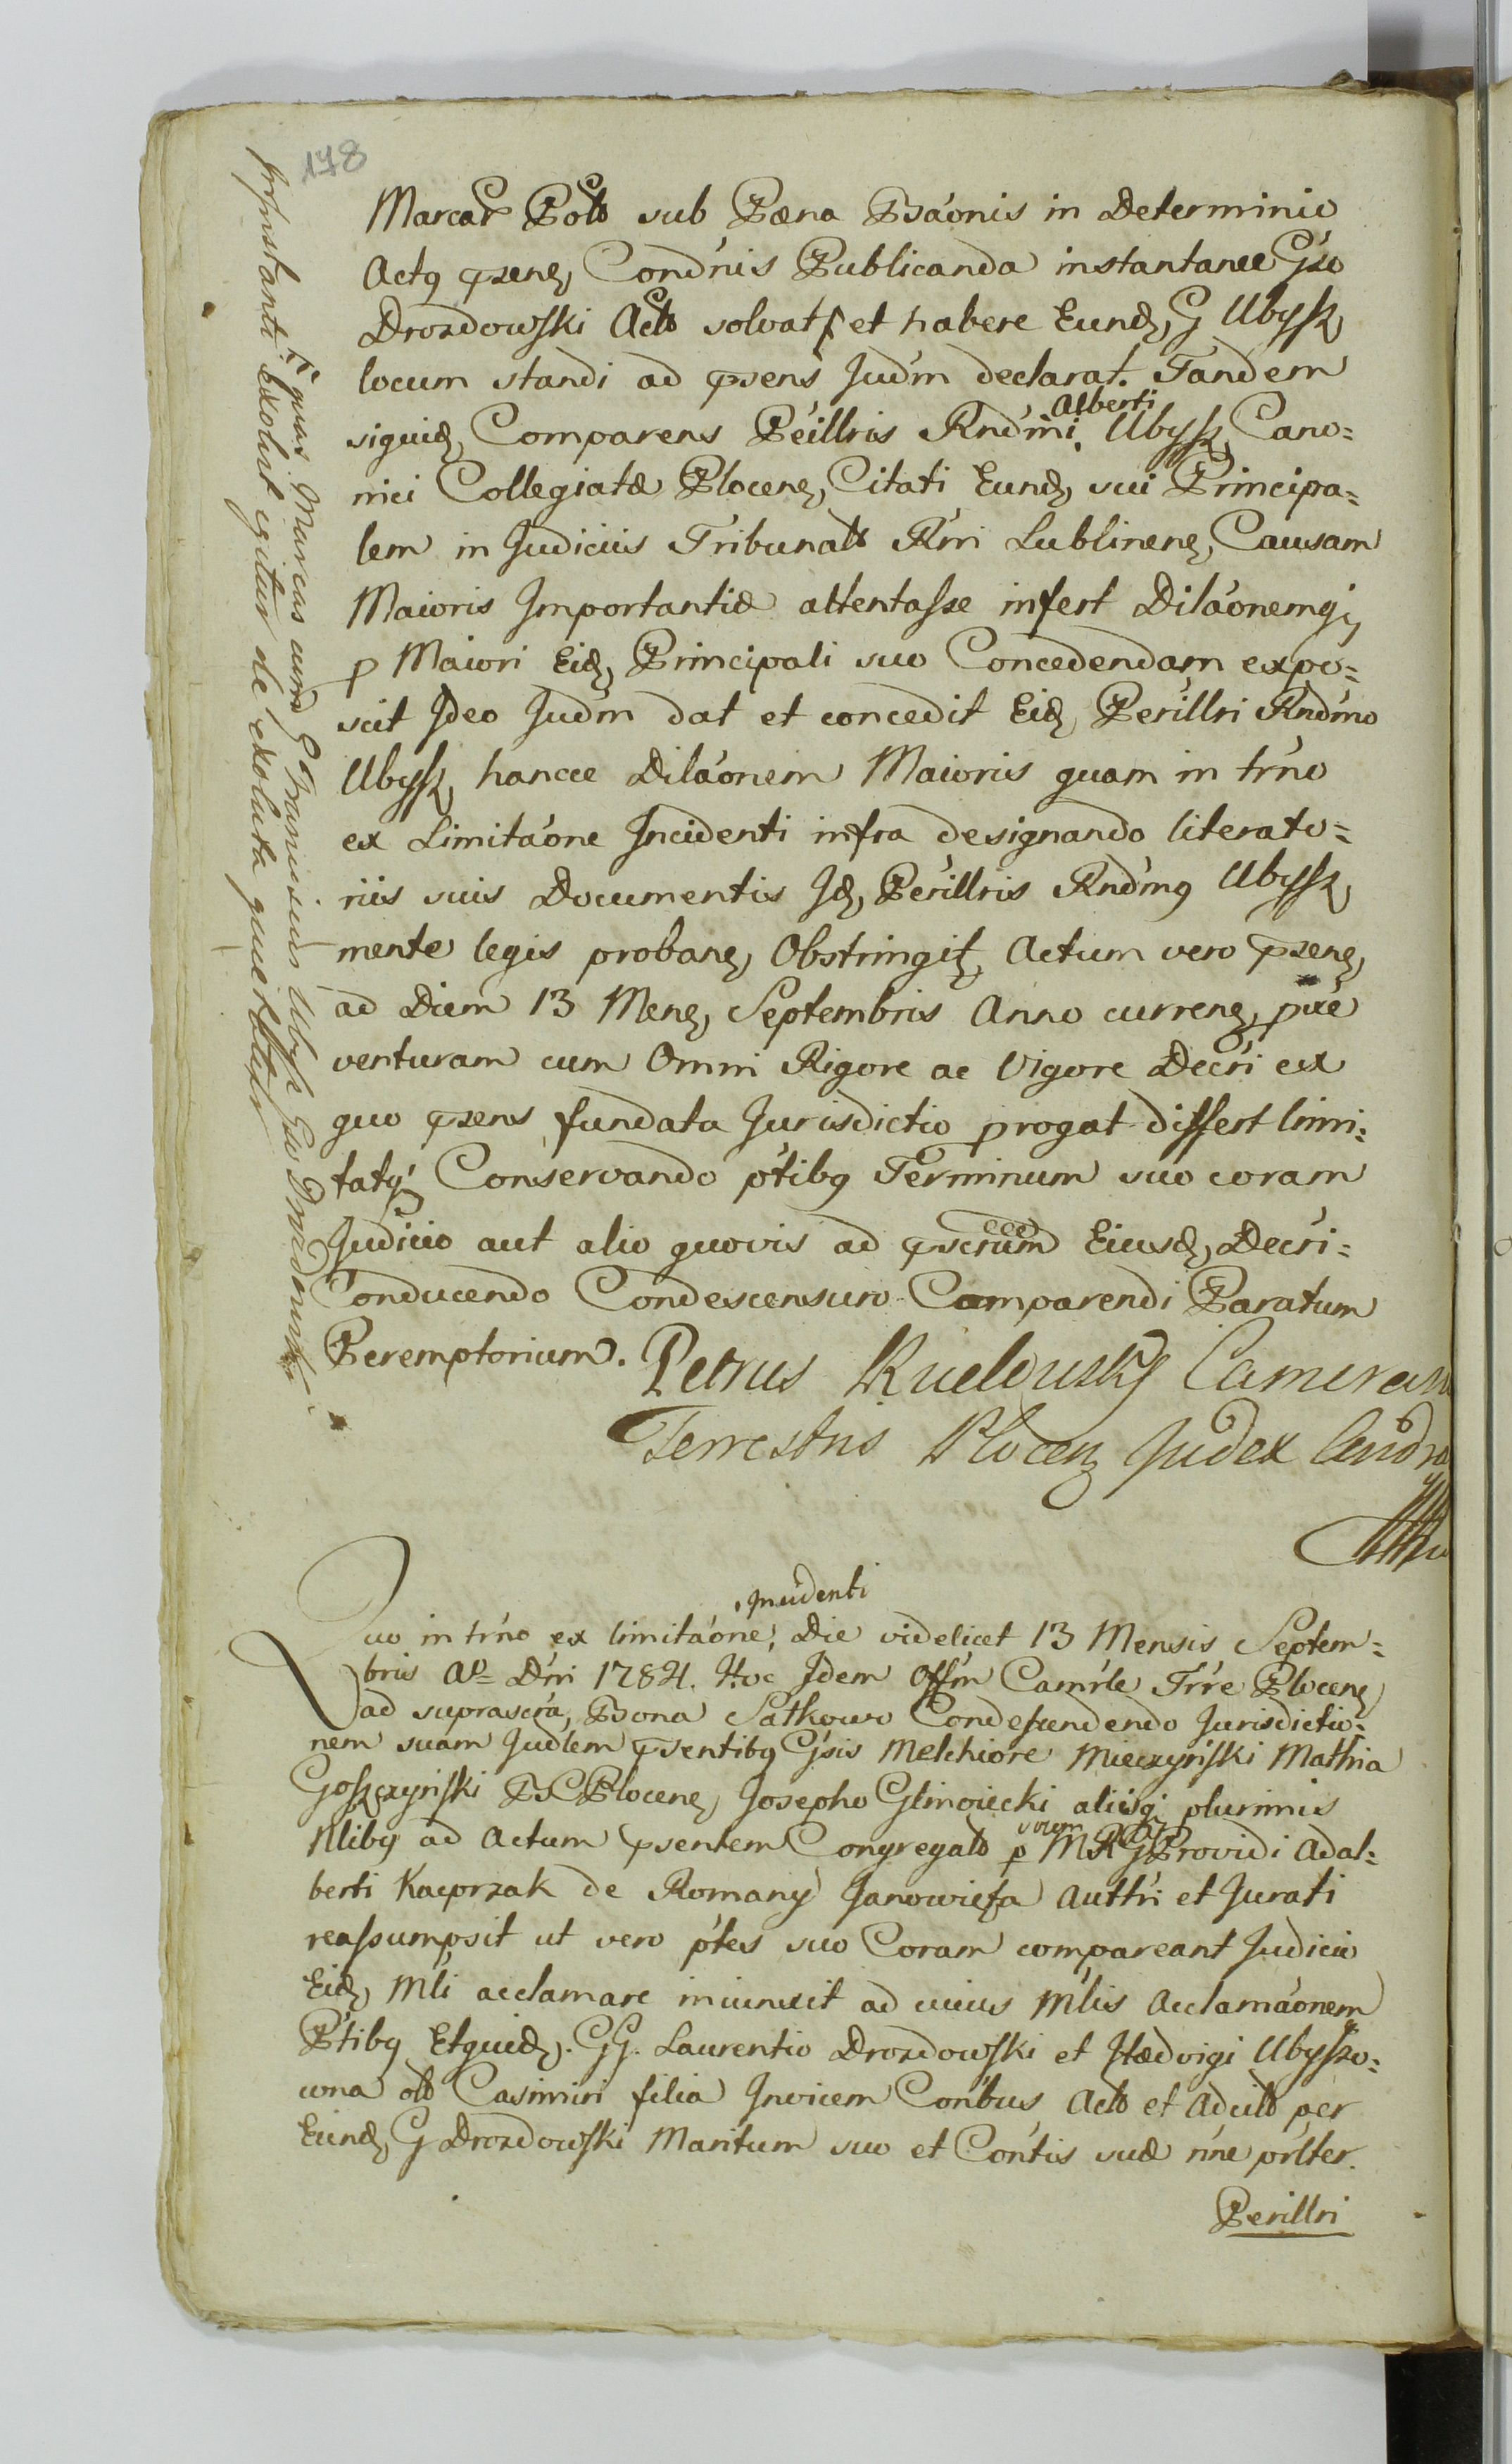 178
Marcar Polo sub Pæna Báonis in Determinio
Actq przeng Condn̄is Publicanda instantanee Gso
Drozdowski Acto solvat et habere Eundz G Ubysz
locum standi ad przens Judm declarat. Tandem
siquidz Comparens Péillris Rndmi Alberti Ubysz Cano=
nici Collegiatæ Plocenz Citati Eundz sui Principa=
lem in Judiciis Tribunalo Rni Lublinenz Causam
Maioris Importantiæ attentasse infert Diláonemq
p Maiori Eidz Principali suo Concedendam expo=
scit Ideo Judm dat et concedit Eidz Perillri Rndmo
Ubysz hancce Diláonem Maioris quam in trńo
ex Limitáone Incidenti infra designando literato=
riis suis Documentis Idz Perillris Rndmq Ubysz
mente legis probanz Obstringitz Actum vero przenz
ad Diem 13 Menz Septembris Anno currenz pxe
venturam cum Omni Rigore ac Vigore Decri ex
quo przens fundata Jurisdictio progat differt limi=
tatq Conservando ptibq Terminum suo coram
Judicio aut alio quovis ad Eiusdz Decri=
Conducendo Condescensuro Comparendi Paratum
Peremptorium. Petrus Camerar
Terrestris Plocenz Judex
quas Marcas cum G Franciscus Ubysz Gso Drozdowski
instanti Exolvit igitur de exoluta quietatur
Quo in trńo ex limitáone, Incidenti Die videlicet 13 Mensis Septem=
bris Ao Dni 1784. Hoc Idem Offm Camrle Trre Plocenz
ad suprascra, Bona Satkowo Condescendendo Jurisdictio=
nem suam Judlem przentibq Gsis Melchiore Mieczyński Mathia
Goszczyński B C Plocenz Josepho Glinoiecki aliisq plurimis
Nlibq ad Actum przentem Congregato p M Providi Adal=
berti Kacprzak de Romany Janowięta Authri et Jurati
reassumpsit ut vero ptes suo Coram compareant Judicio
Eidz Mli acclamare iniunxit ad cuius Mlis Acclamáonem
Ptibq Etquidz. GG. Laurentio Drozdowski et Hædvigi Ubyszo=
wna olo Casimiri filia Invicem Conbus Acto et Adcito per
Eundz G Drozdowski Maritum suo et Contis suæ nne prlter.
Perillri